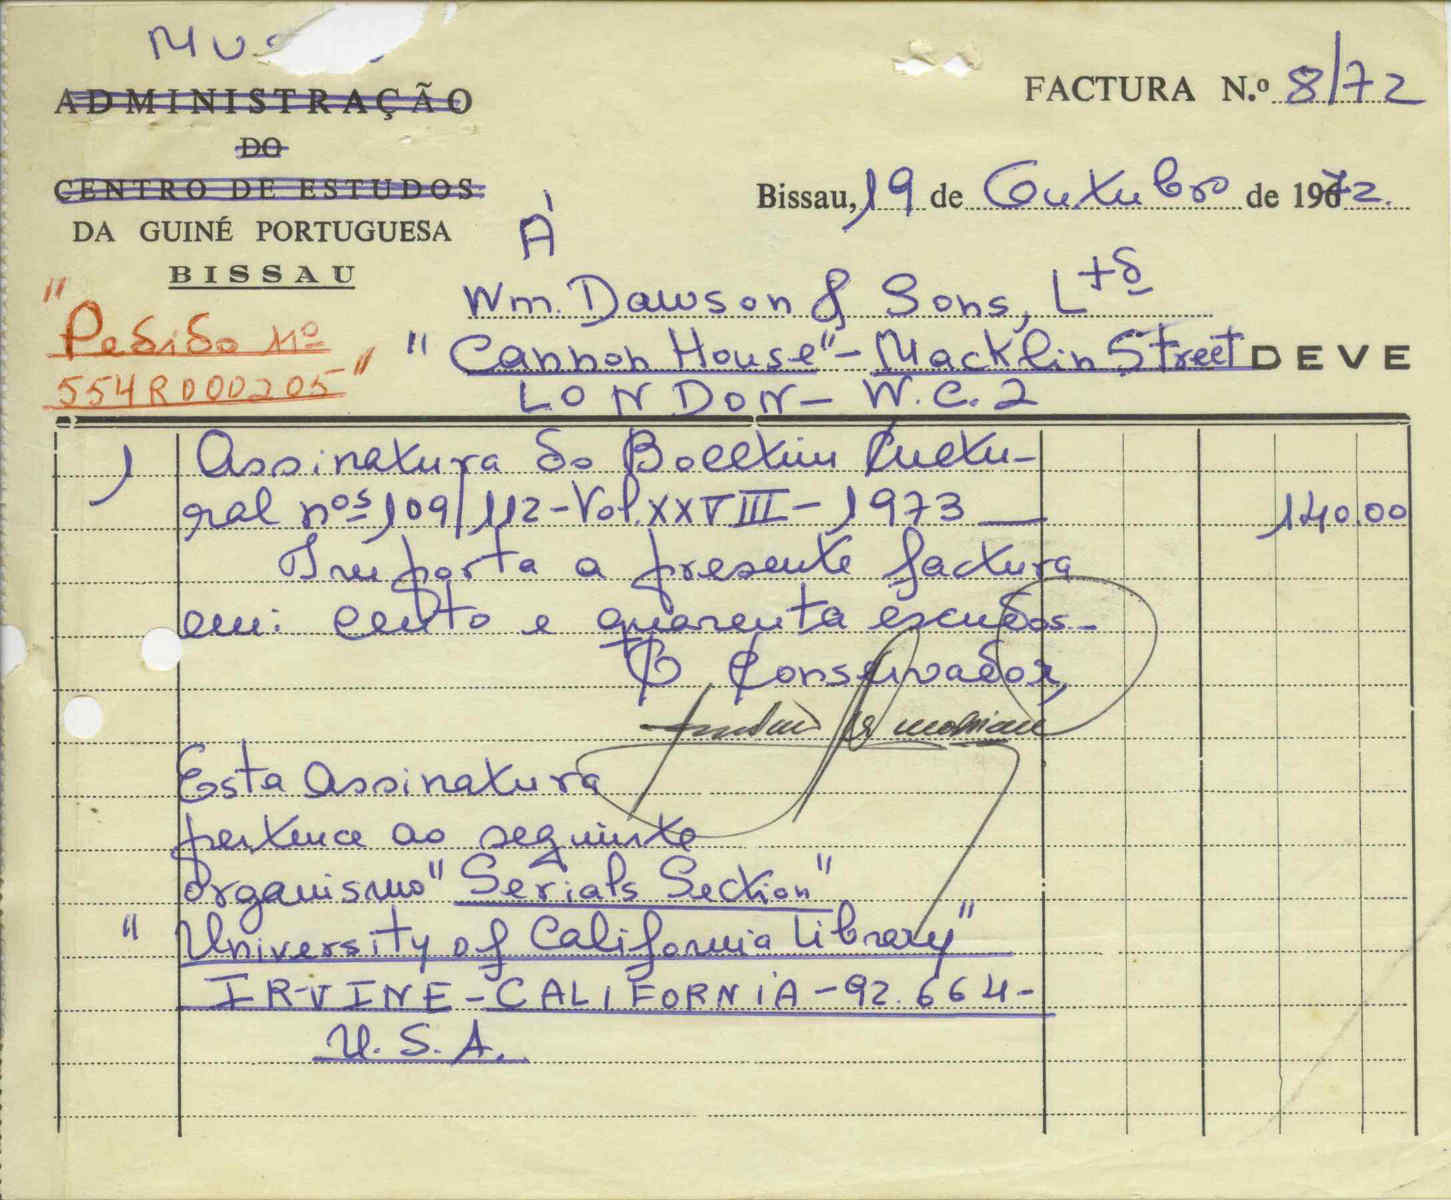 MUS
ADMINISTRAÇÃO
DO
CENTRO DE ESTUDOS
DA GUINÉ PORTUGUESA
BISSAU
FACTURA N.º 8/72
Bissau, 19 de Outubro de 1972.
À
Wm. Dawson & Sons, Ltd
"Cannon House" - Macklin Street DEVE
LONDON - W.C. 2
"Pedido Nº
554RD00205"
1 Assinatura do Boletim Cultu-
ral nos 109/112 - Vol. XXVIII - 1973 — 140.00
Importa a presente factura
em: cento e quarenta escudos -
O Conservador,
Esta Assinatura
pertence ao seguinte
organismo "Serials Section"
"University of California Library"
IRVINE - CALIFORNIA - 92.664 -
U.S.A.